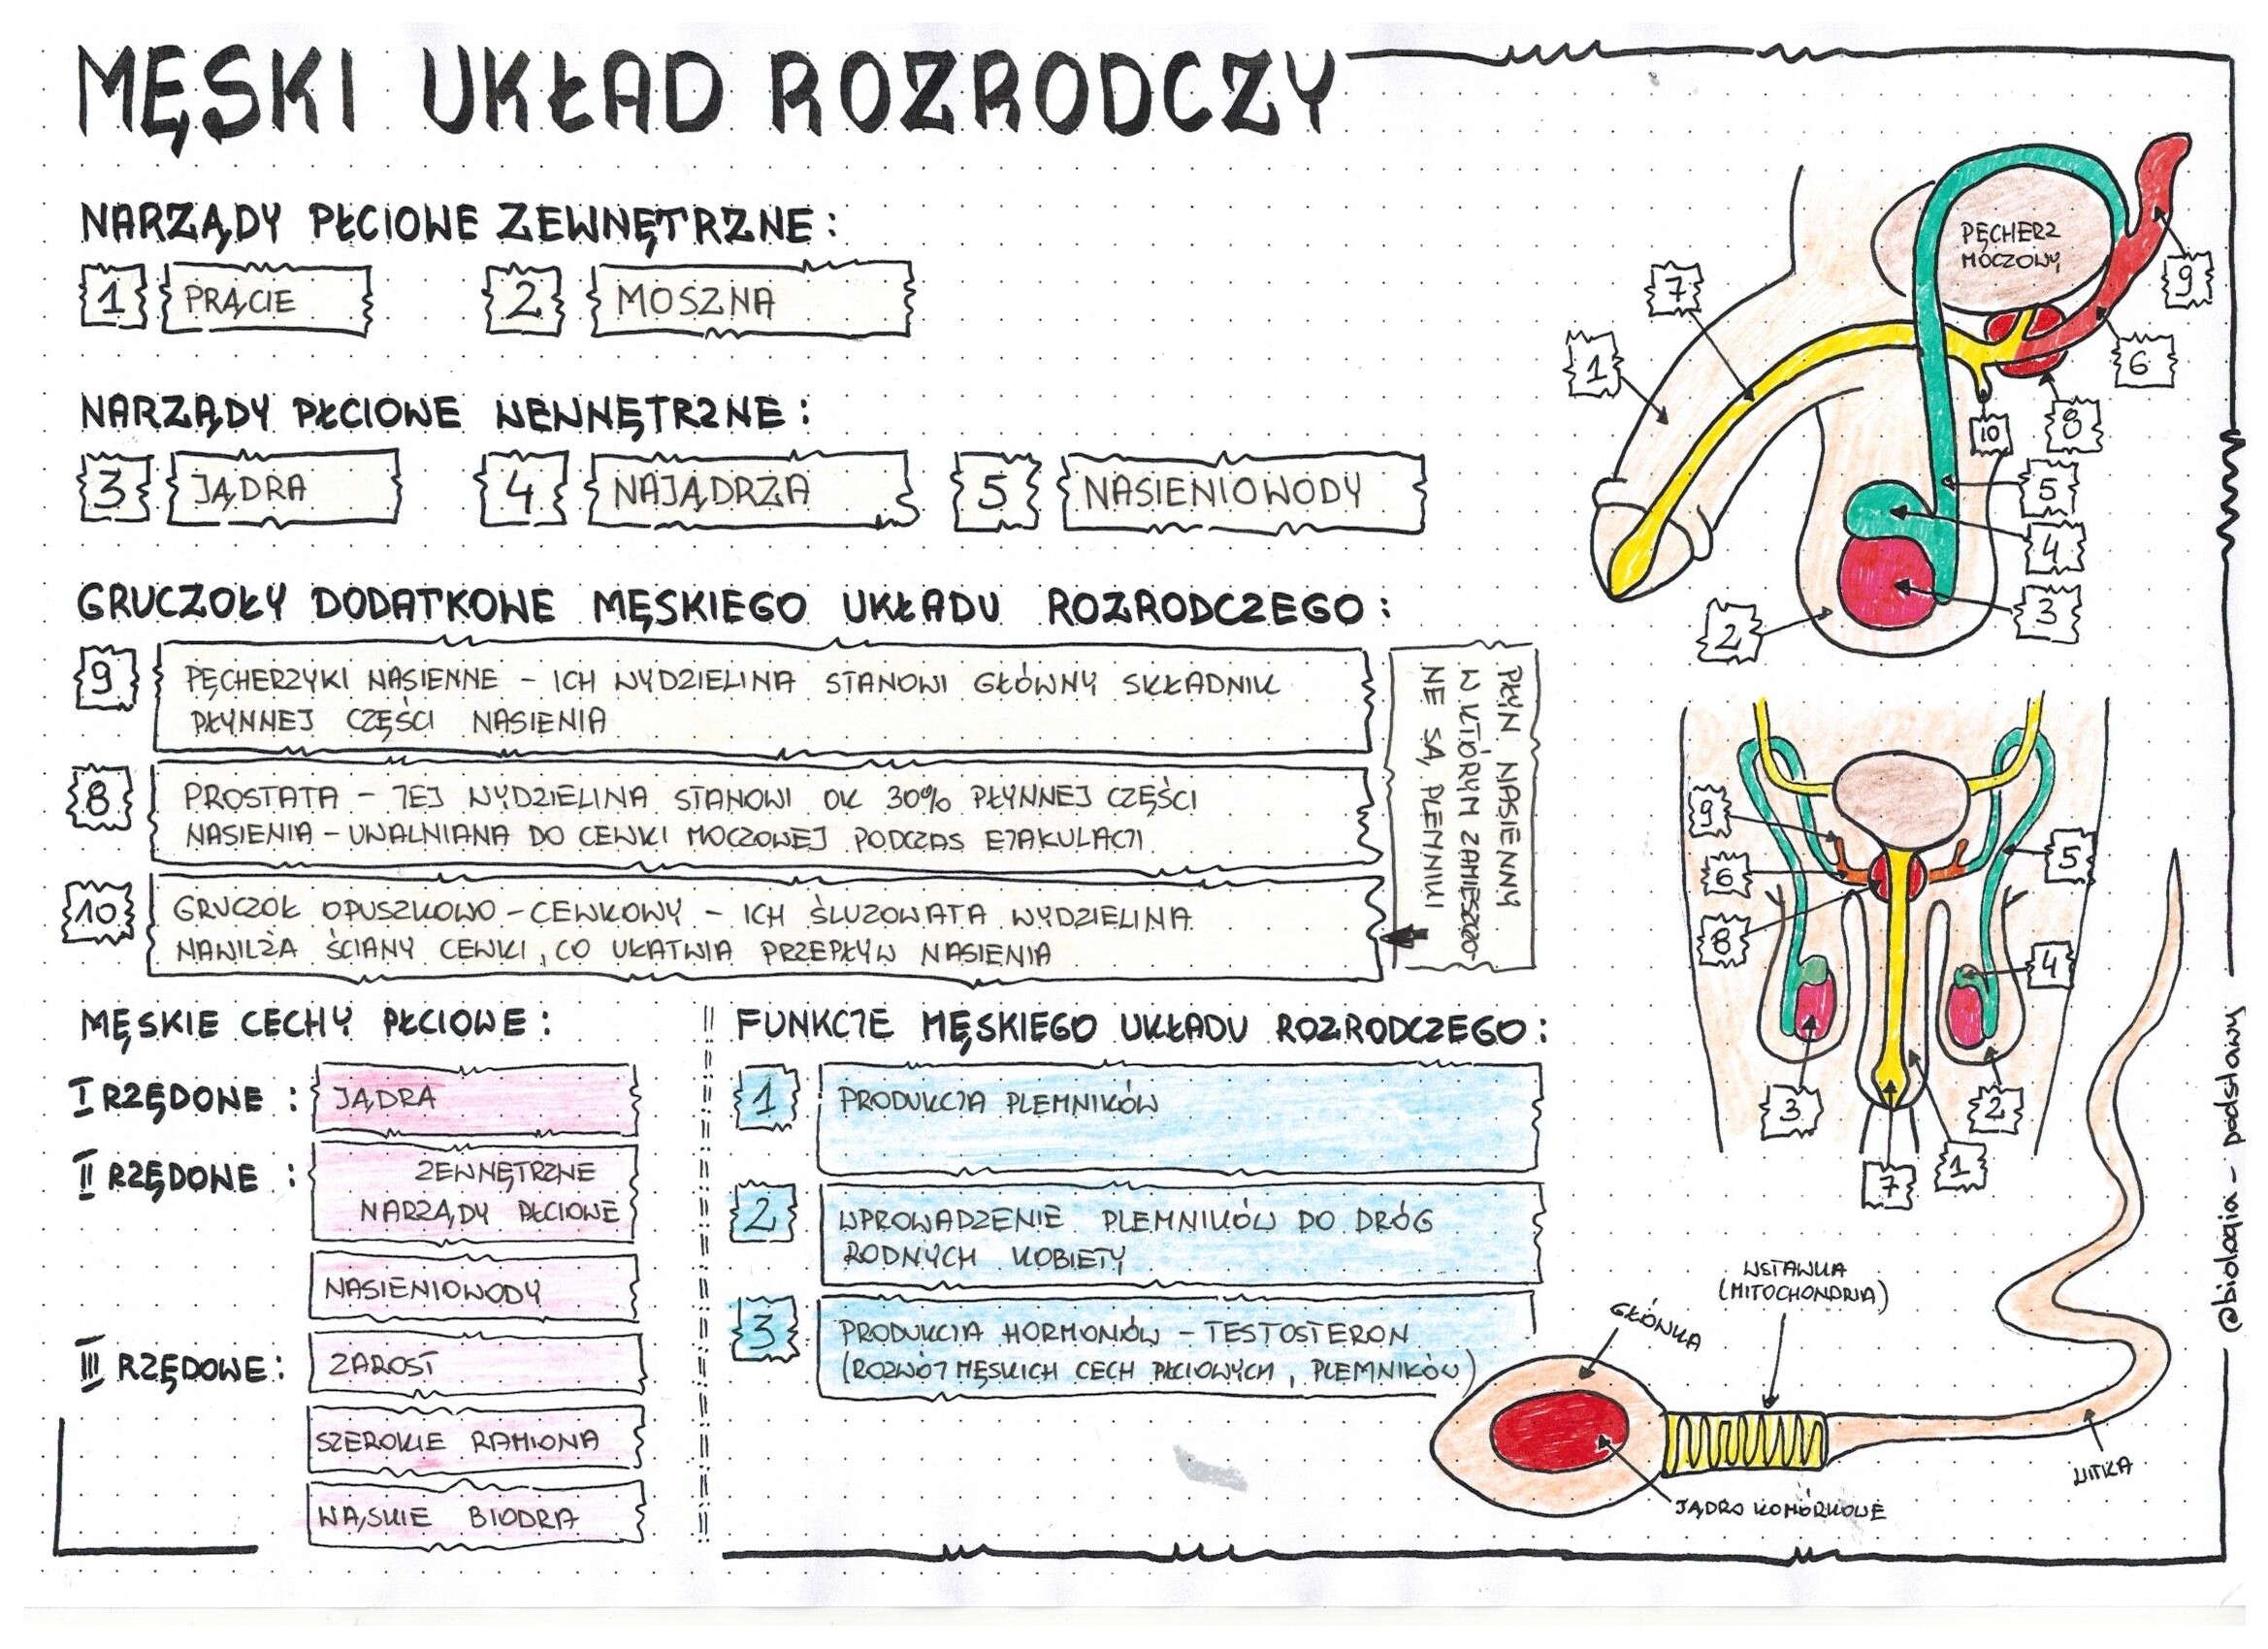 MĘSKI UKŁAD ROZRODCZY
NARZĄDY PŁCIOWE ZEWNĘTRZNE:
1 PRĄCIE
2 MOSZNA
NARZĄDY PŁCIOWE WEWNĘTRZNE:
3 JĄDRA
4 NAJĄDRZA
5 NASIENIOWODY
GRUCZOŁY DODATKOWE MĘSKIEGO UKŁADU ROZRODCZEGO:
9 PĘCHERZYKI NASIENNE - ICH WYDZIELINA STANOWI GŁÓWNY SKŁADNIK
PŁYNNEJ CZĘŚCI NASIENIA
8 PROSTATA - JEJ WYDZIELINA STANOWI OK 30% PŁYNNEJ CZĘŚCI
NASIENIA - UWALNIANA DO CEWKI MOCZOWEJ PODCZAS EJAKULACJI
10 GRUCZOŁ OPUSZKOWO - CEWKOWY - ICH ŚLUZOWATA WYDZIELINA
NAWILŻA ŚCIANY CEWKI, CO UŁATWIA PRZEPŁYW NASIENIA
PŁYN NASIENNY
W KTÓRYM ZAMIESZCZO-
NE SĄ PLEMNIKI
MĘSKIE CECHY PŁCIOWE:
I RZĘDOWE:
JĄDRA
II RZĘDOWE:
ZEWNĘTRZNE
NARZĄDY PŁCIOWE
NASIENIOWODY
III RZĘDOWE:
ZAROST
SZEROKIE RAMIONA
WĄSKIE BIODRA
FUNKCJE MĘSKIEGO UKŁADU ROZRODCZEGO:
1 PRODUKCJA PLEMNIKÓW
2 WPROWADZENIE PLEMNIKÓW DO DRÓG
RODNYCH KOBIETY
3 PRODUKCJA HORMONÓW - TESTOSTERON
(ROZWÓJ MĘSKICH CECH PŁCIOWYCH, PLEMNIKÓW)
PĘCHERZ
MOCZOWY
7
9
1
6
10
8
5
4
3
2
9
6
8
5
4
3
2
7
1
WSTAWKA
(MITOCHONDRIA)
GŁÓWKA
WITKA
JĄDRO KOMÓRKOWE
@biologia - podstawy